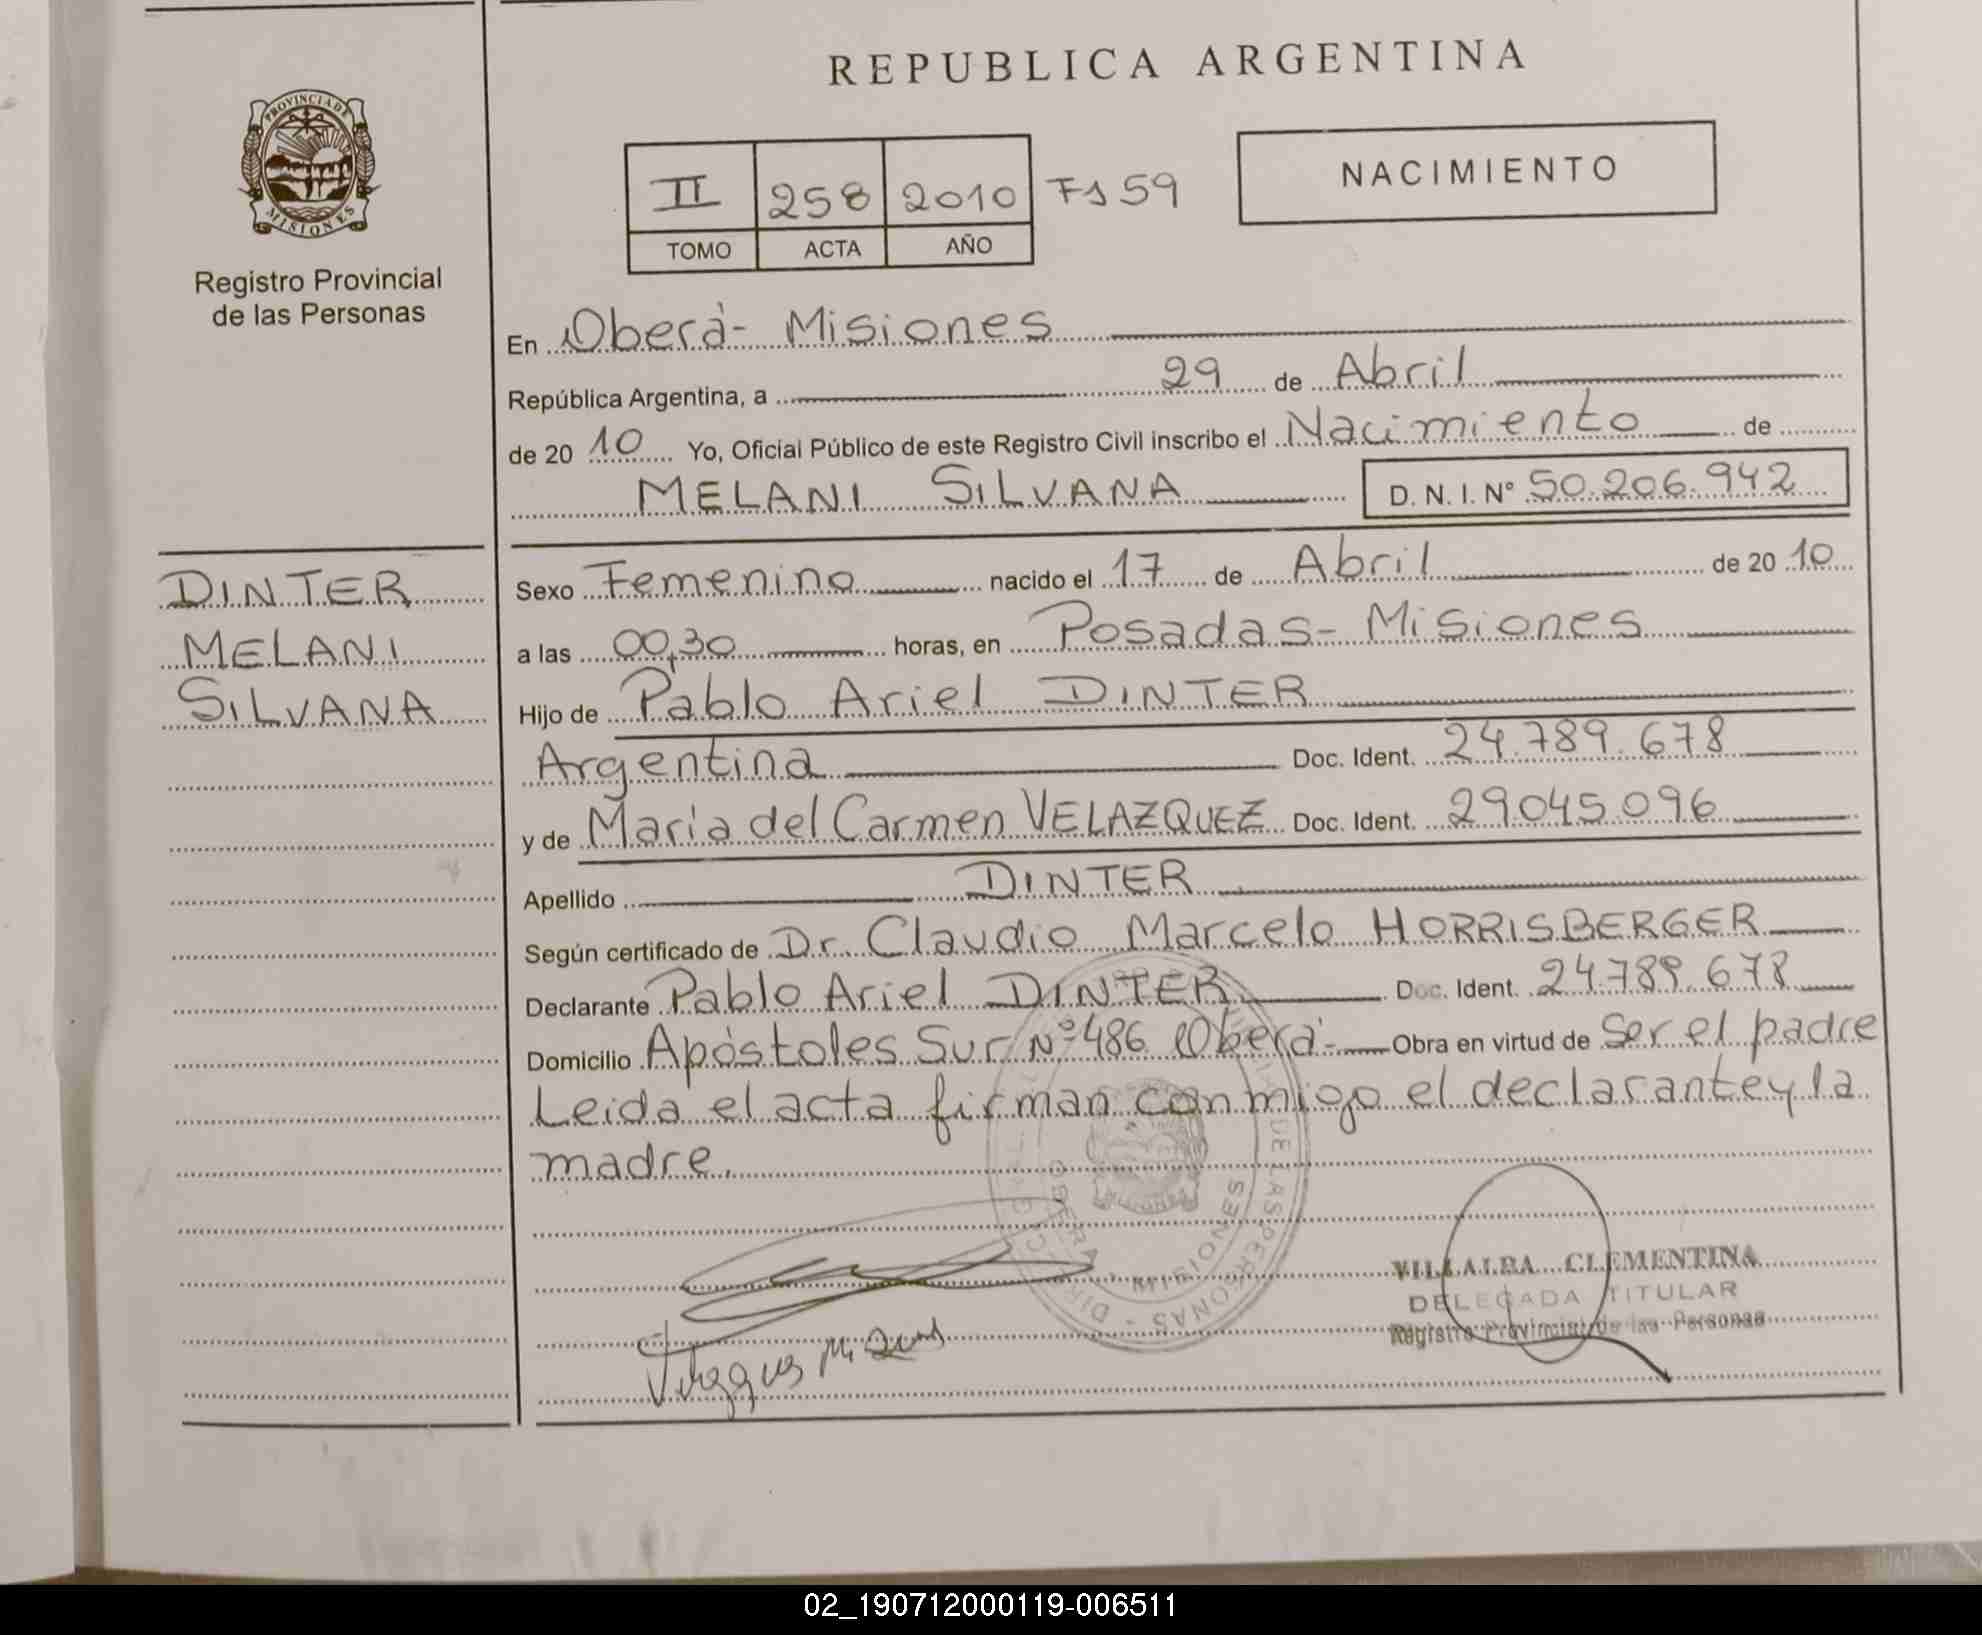 REPUBLICA ARGENTINA
PROVINCIA DE
MISIONES
Registro Provincial
de las Personas
II 258 2010 Fs 59
TOMO ACTA AÑO
NACIMIENTO
En Oberá- Misiones
República Argentina, a 29 de Abril
de 2010 Yo, Oficial Público de este Registro Civil inscribo el Nacimiento de
MELANI SILVANA D. N. I. Nº 50.206.942
DINTER
MELANI
SILVANA
Sexo Femenino nacido el 17 de Abril de 2010
a las 00,30 horas, en Posadas- Misiones
Hijo de Pablo Ariel DINTER
Argentina Doc. Ident. 24.789.678
y de María del Carmen VELAZQUEZ Doc. Ident. 29045.096
Apellido DINTER
Según certificado de Dr. Claudio Marcelo HORRISBERGER
Declarante Pablo Ariel DINTER Doc. Ident. 24.789.678
Domicilio Apóstoles Sur Nº 486 Oberá- Obra en virtud de Ser el padre
Leida el acta firman conmigo el declarante y la
madre.
DE LAS PERSONAS
OBERA
MISIONES
VILLALBA CLEMENTINA
DELEGADA TITULAR
Registro Provincial de las Personas
02_190712000119-006511